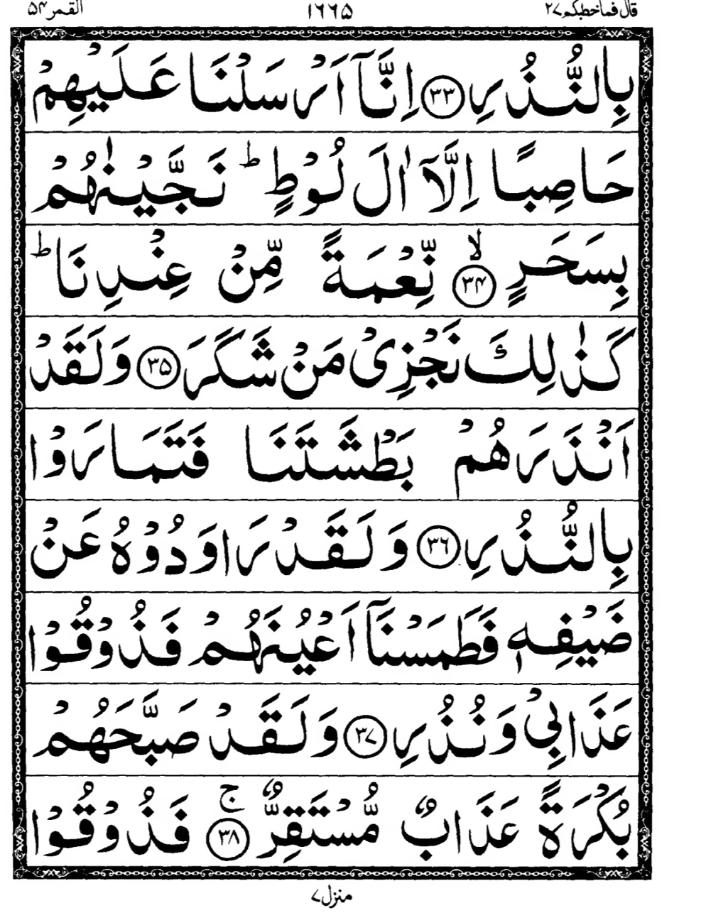 قال فماخطبکم ۲۷ ۱٦٦۵ القمر ۵۴
بِالنُّذُرِ ﴿۳۳﴾ اِنَّاۤ اَرْسَلْنَا عَلَیْهِمْ
حَاصِبًا اِلَّاۤ اٰلَ لُوْطٍ ؕ نَجَّیْنٰهُمْ
بِسَحَرٍ ﴿ۙ۳۴﴾ نِّعْمَةً مِّنْ عِنْدِنَا ؕ
كَذٰلِكَ نَجْزِیْ مَنْ شَكَرَ ﴿۳۵﴾ وَلَقَدْ
اَنْذَرَهُمْ بَطْشَتَنَا فَتَمَارَوْا
بِالنُّذُرِ ﴿۳۶﴾ وَلَقَدْ رَاوَدُوْهُ عَنْ
ضَیْفِهٖ فَطَمَسْنَاۤ اَعْیُنَهُمْ فَذُوْقُوْا
عَذَابِیْ وَنُذُرِ ﴿۳۷﴾ وَلَقَدْ صَبَّحَهُمْ
بُكْرَةً عَذَابٌ مُّسْتَقِرٌّ ﴿ۚ۳۸﴾ فَذُوْقُوْا
منزل ۷